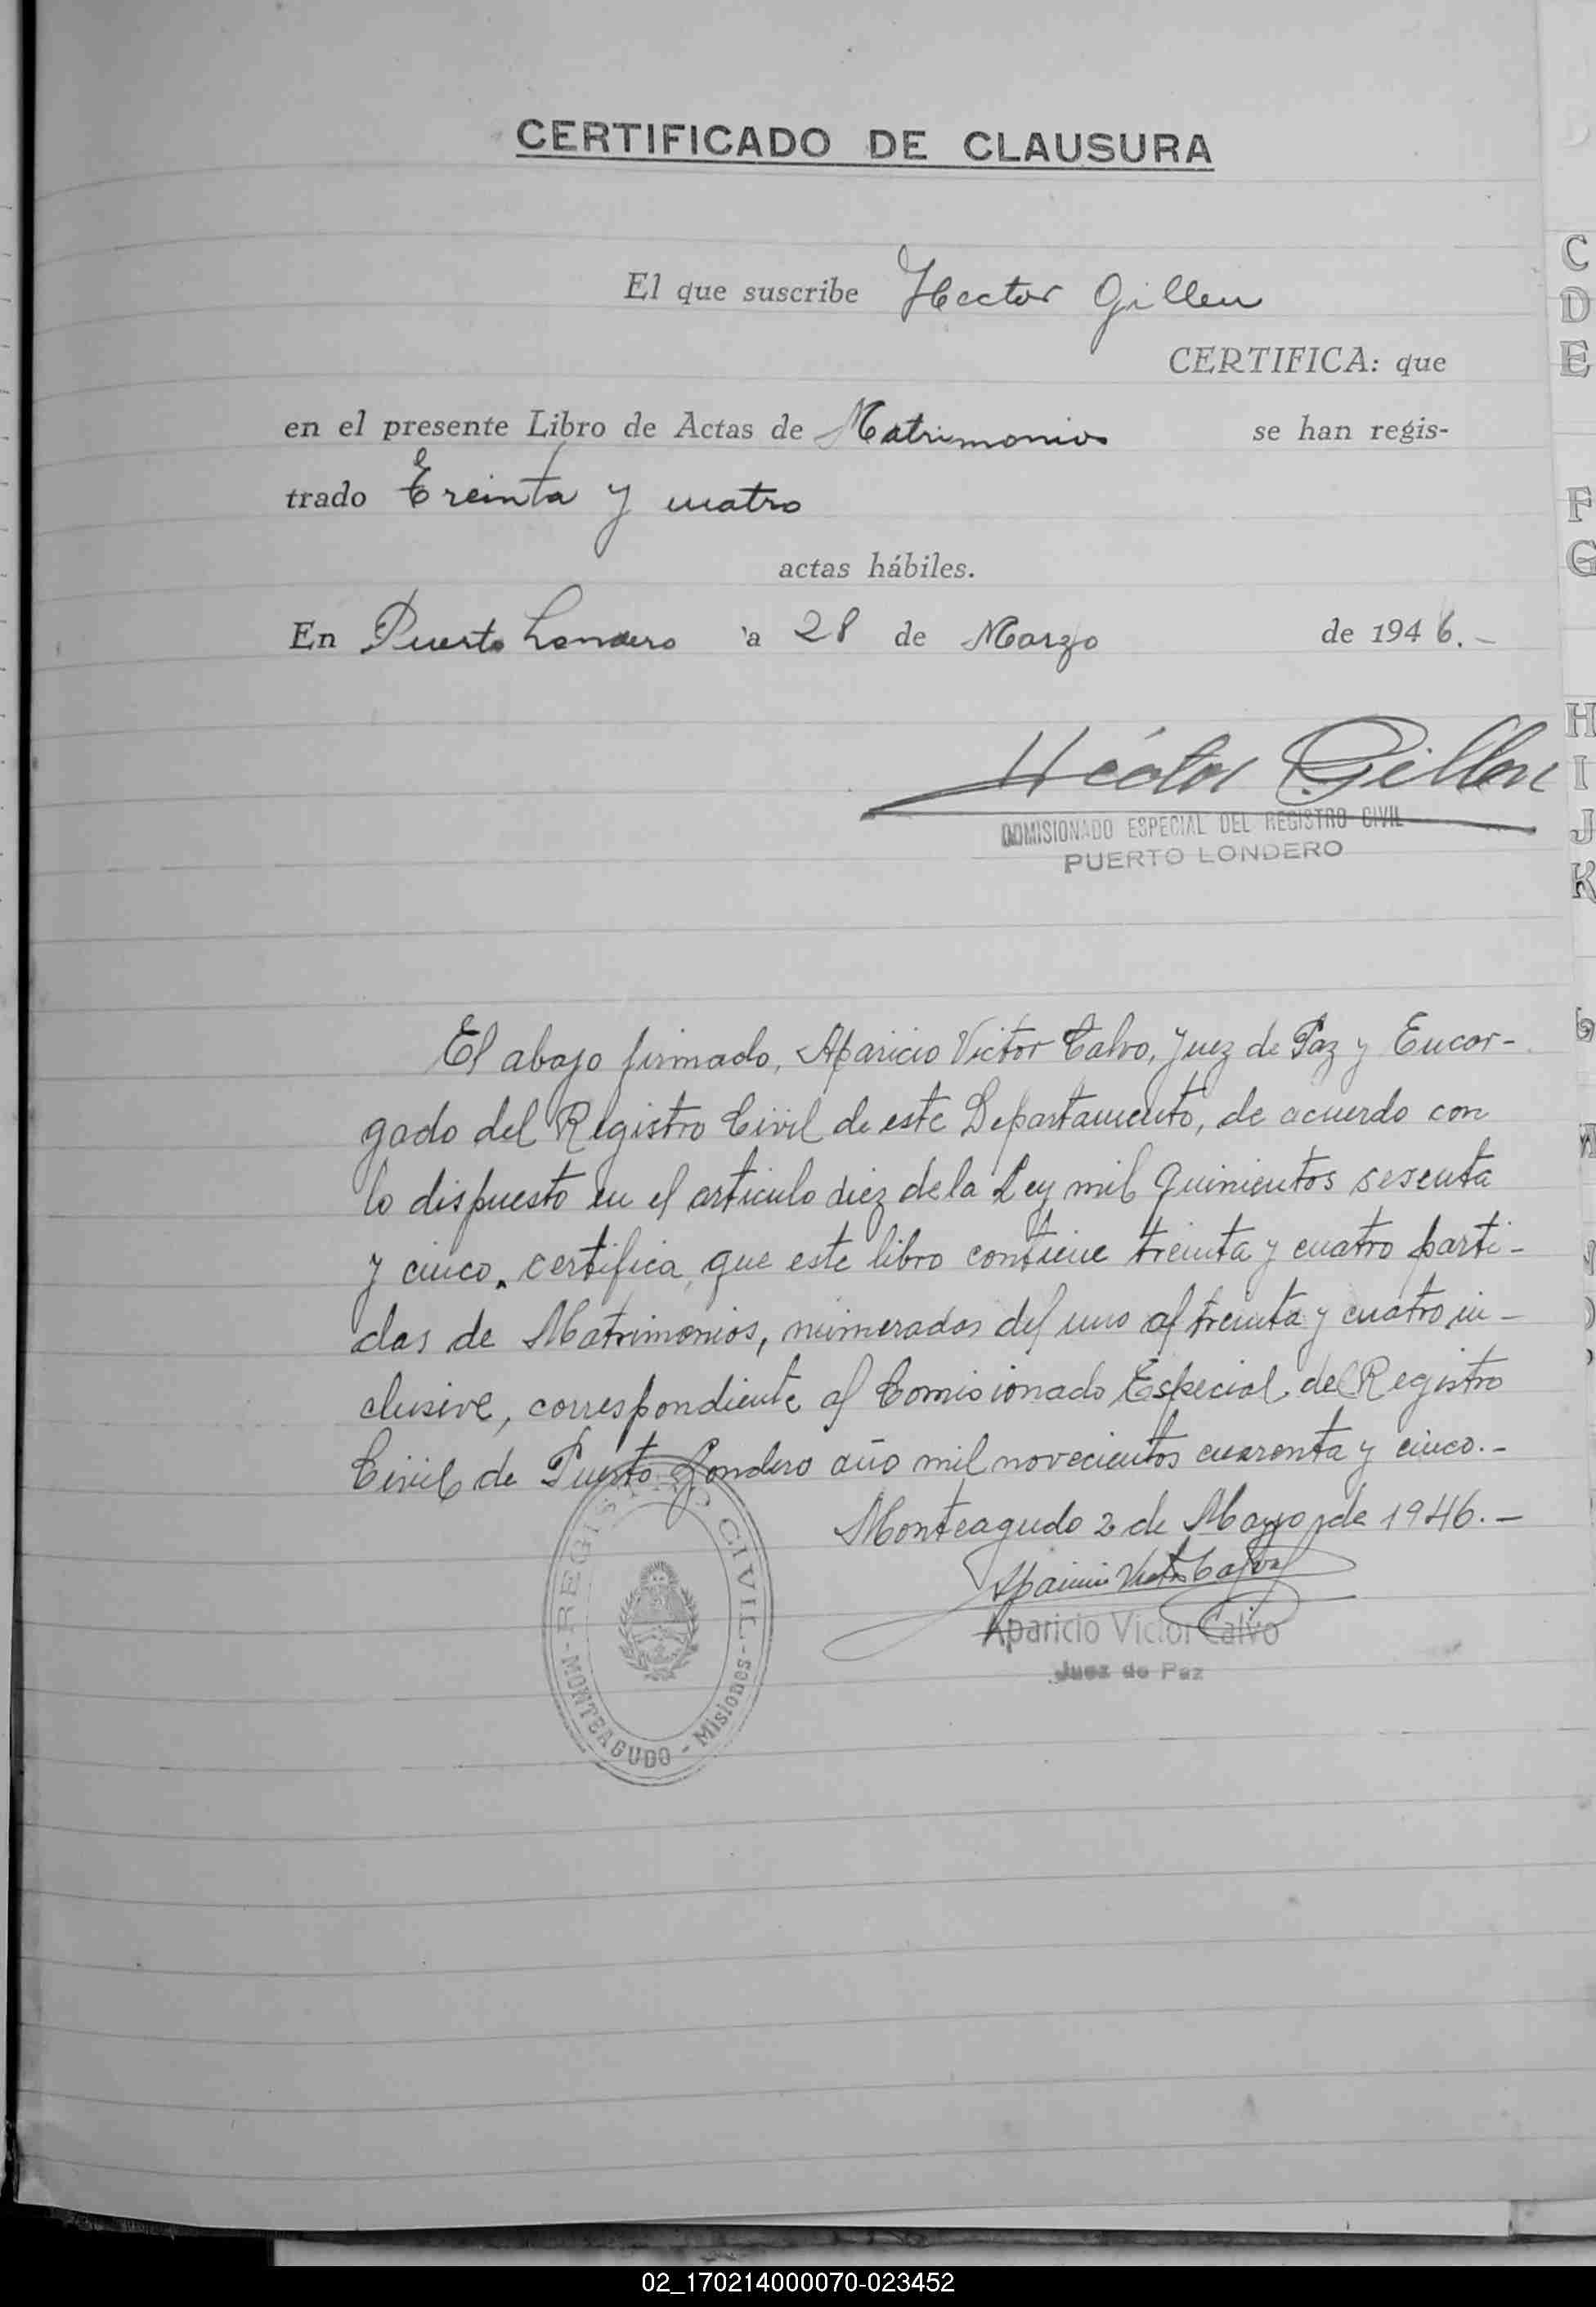 CERTIFICADO DE CLAUSURA
El que suscribe Hector Gillen
CERTIFICA: que
en el presente Libro de Actas de Matrimonios se han regis-
trado Treinta y cuatro
actas hábiles.
En Puerto Londero a 28 de Marzo de 1946.-
Héctor Gillen
COMISIONADO ESPECIAL DEL REGISTRO CIVIL
PUERTO LONDERO
El abajo firmado, Aparicio Victor Calvo, Juez de Paz y Encar-
gado del Registro Civil de este Departamento, de acuerdo con
lo dispuesto en el articulo diez de la Ley mil quinientos sesenta
y cinco, certifica, que este libro contiene treinta y cuatro parti-
das de Matrimonios, numeradas del uno al treinta y cuatro in-
clusive, correspondiente al Comisionado Especial del Registro
Civil de Puerto Londero año mil novecientos cuarenta y cinco.-
Monteagudo 2 de Mayo de 1946.-
Aparicio Victor Calvo
Aparicio Victor Calvo
Juez de Paz
REGISTRO CIVIL - MONTEAGUDO - Misiones -
C
D
E
F
G
H
I
J
K
02_170214000070-023452